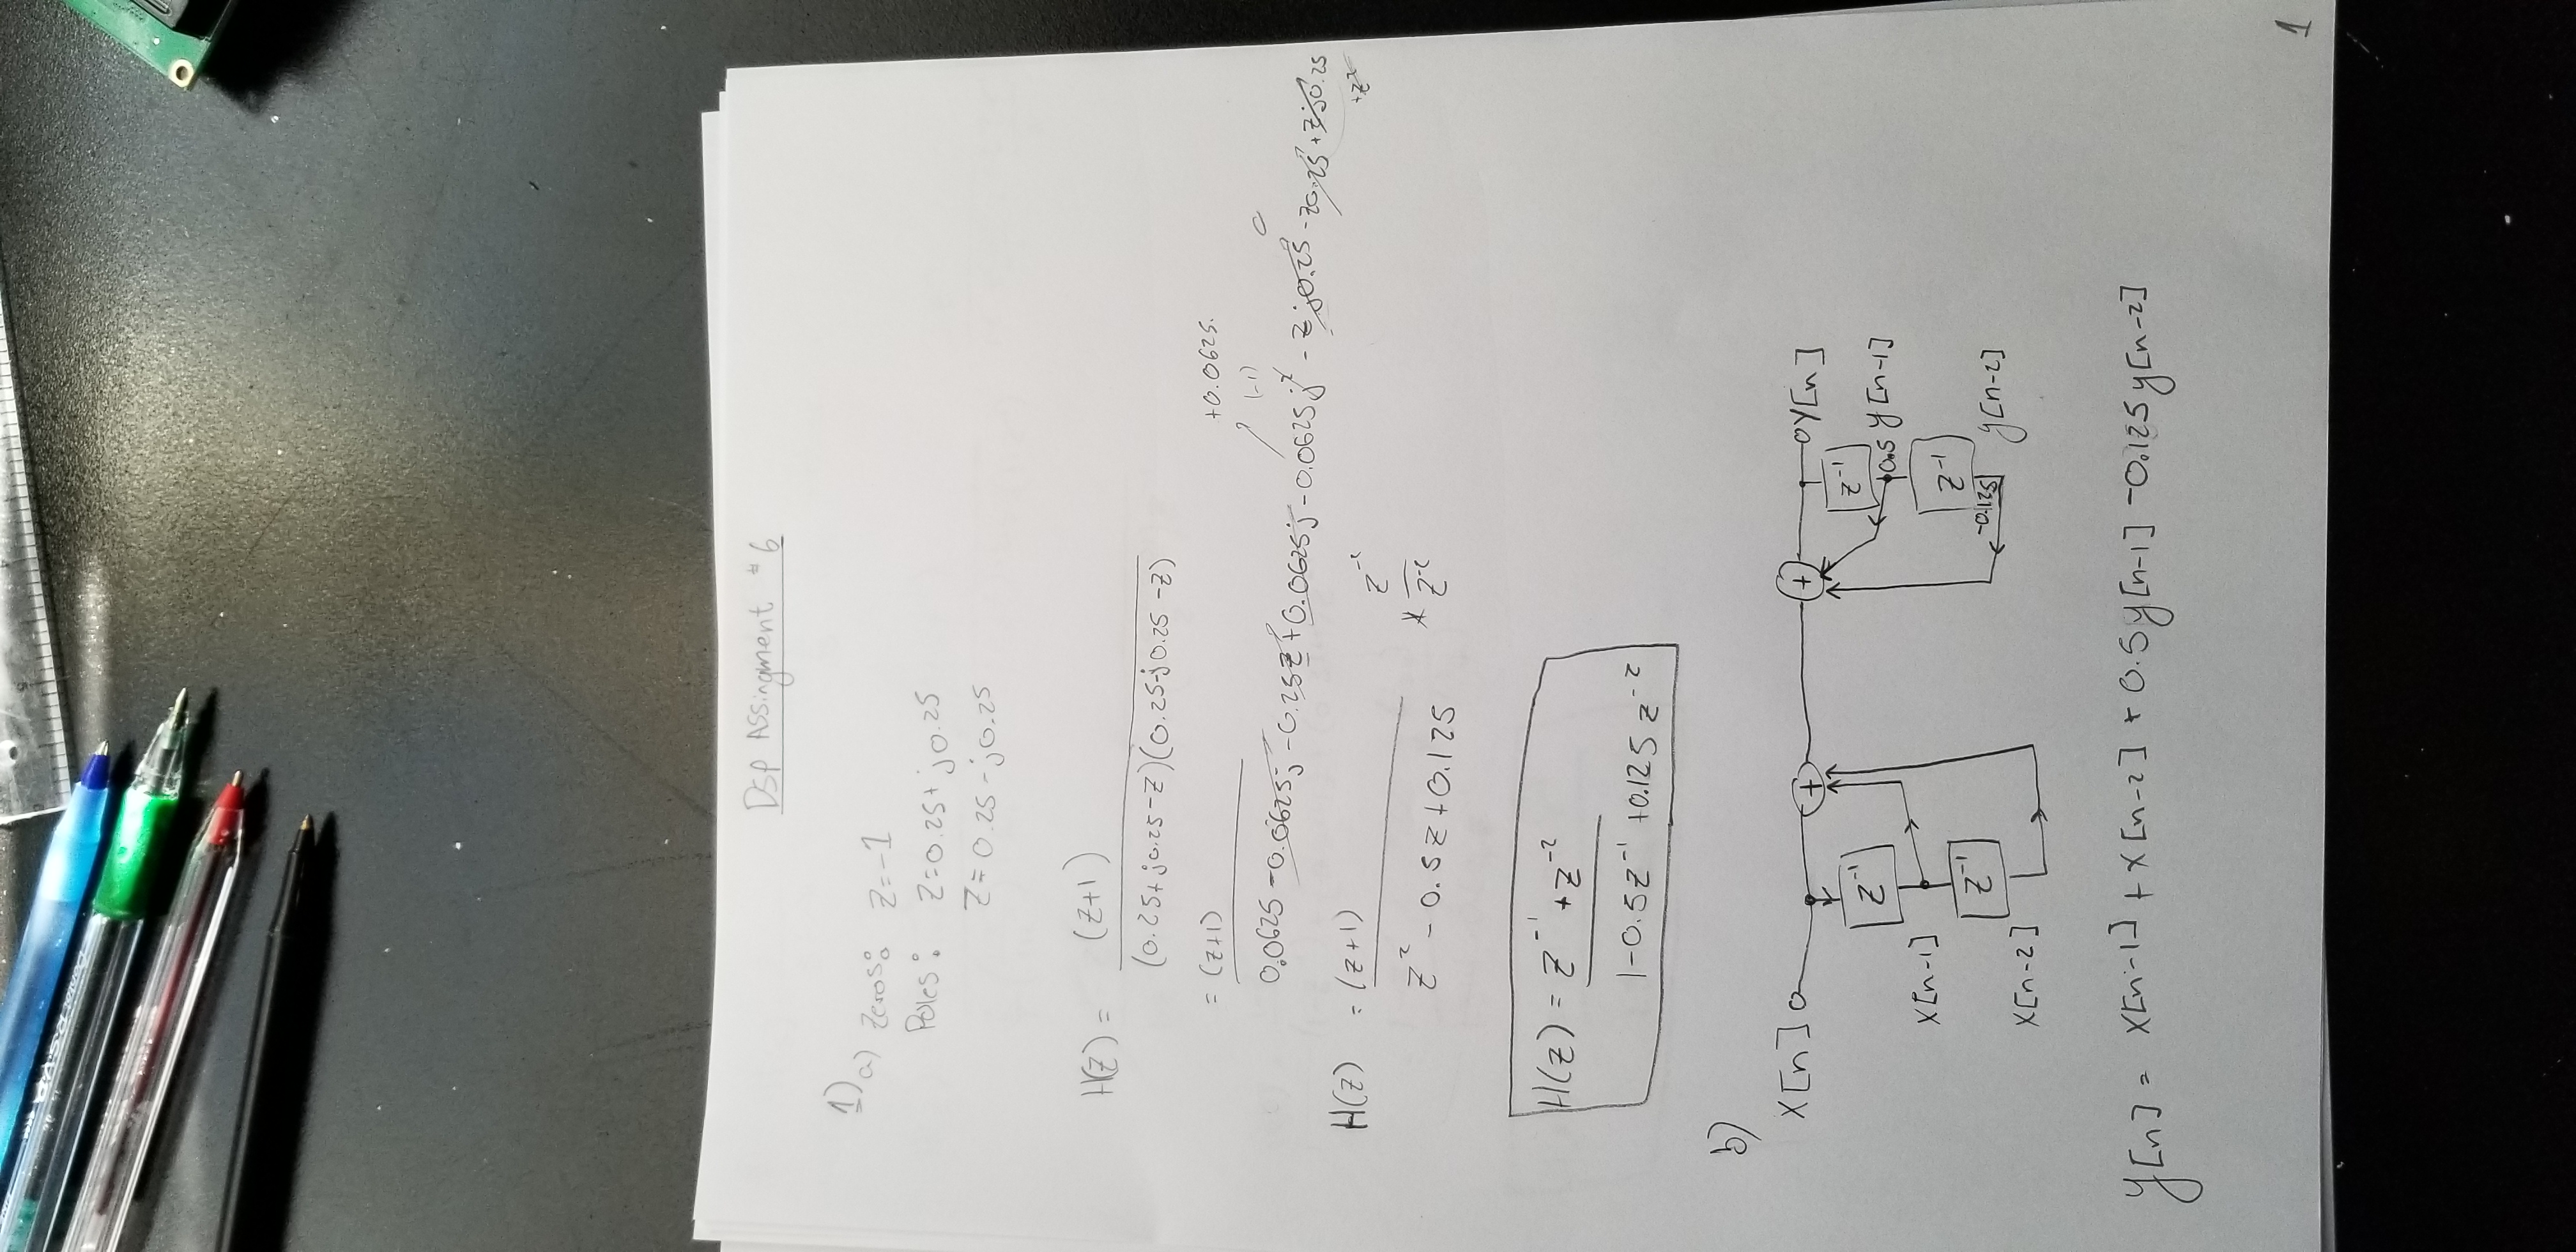 DSP Assingment #6
1) a) Zeros: Z=-1
Poles: Z=0.25+j0.25
Z=0.25-j0.25
H(Z) = (Z+1)
(0.25+j0.25-Z)(0.25-j0.25-Z)
= (Z+1)
+0.0625.
(-1)
0
0.0625 -0.0625j -0.25Z +0.0625j -0.0625j² -Zj0.25 -Z0.25 +Zj0.25
+Z²
H(Z) = (Z+1)
Z² - 0.5Z+0.125
* Z⁻²
Z⁻²
H(Z) = Z⁻¹ + Z⁻²
1-0.5Z⁻¹ +0.125Z⁻²
b)
X[n] + + Y[n]
Z⁻¹ Z⁻¹
0.5 y[n-1]
X[n-1]
Z⁻¹ Z⁻¹
-0.125 y[n-2]
X[n-2]
y[n] = X[n-1] + X[n-2] + 0.5y[n-1] -0.125y[n-2]
1